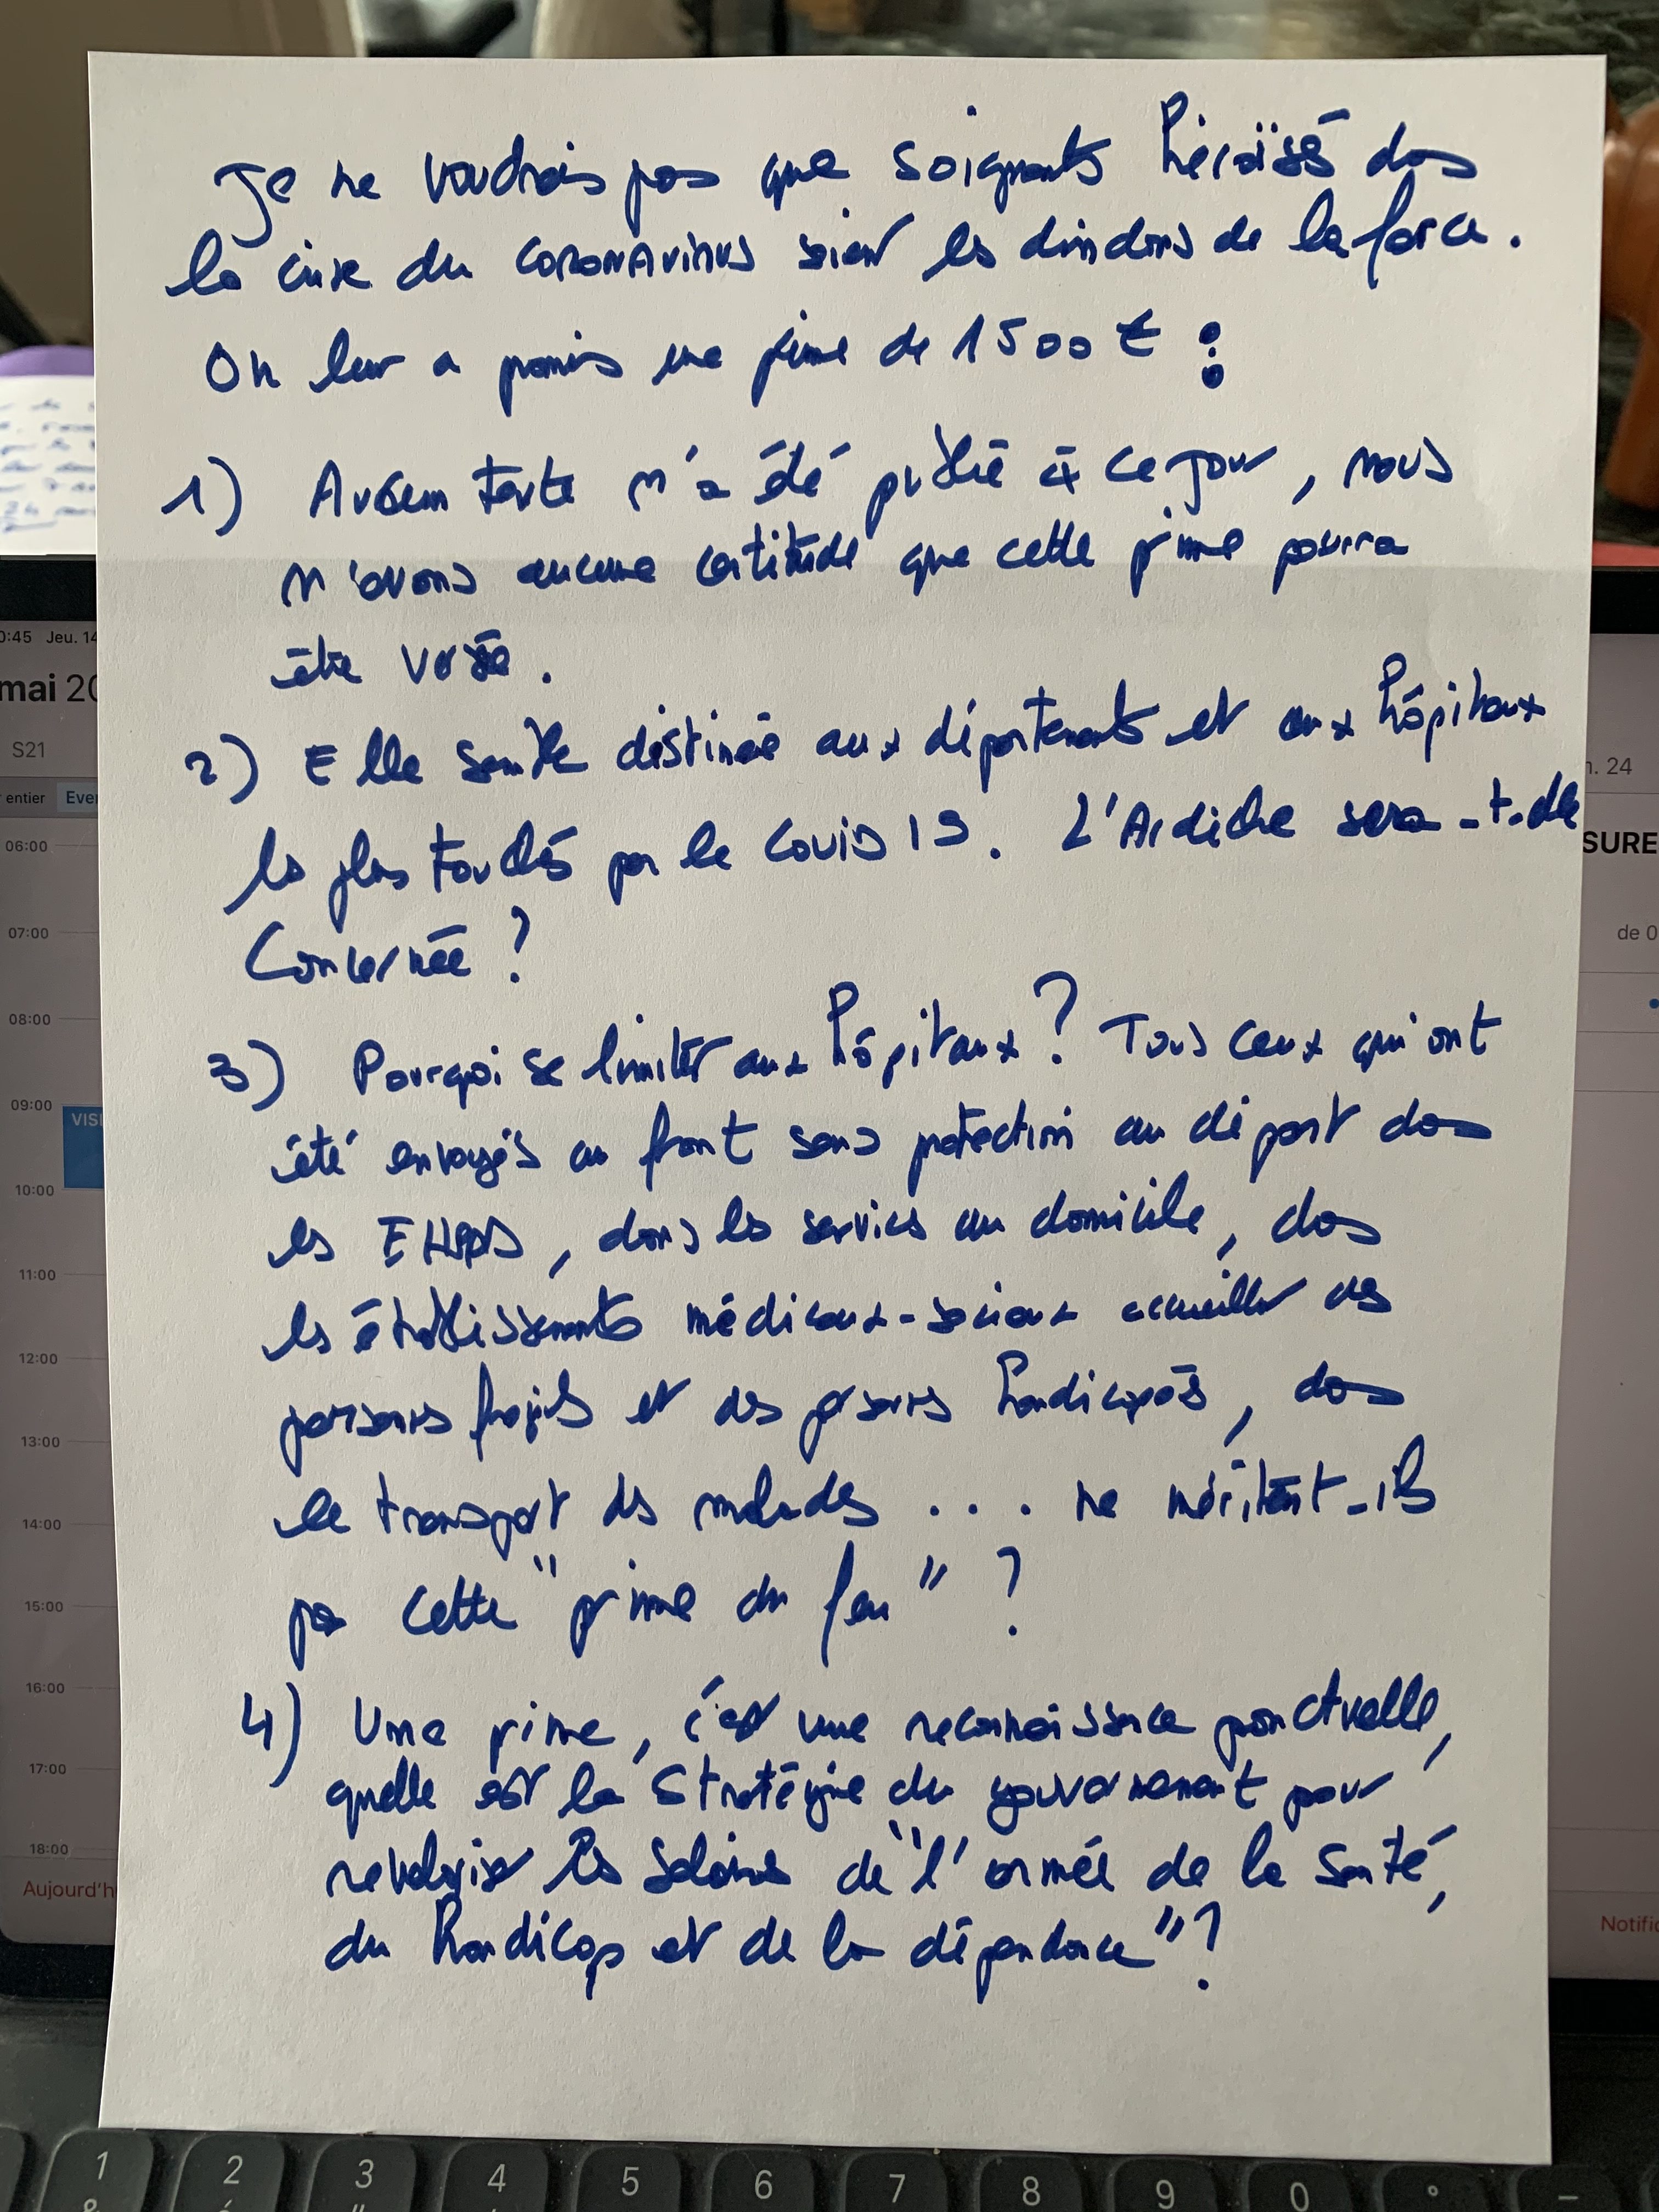 Je ne voudrais pas que soignants héroïsés dans
la crise du coronavirus soient les dindons de la farce.
On leur a promis une prime de 1500 € :
1) Aucun texte n'a été publié à ce jour, nous
n'avons aucune certitude que cette prime pourra
être versée.
2) Elle semble destinée aux départements et aux hôpitaux
les plus touchés par le Covid 19. L'Ardèche sera-t-elle
Concernée ?
3) Pourquoi se limiter aux hôpitaux ? Tous ceux qui ont
été envoyés au front sans protection au départ dans
les EHPADs, dans les services au domicile, dans
les établissements médicaux-sociaux accueillant des
personnes fragiles et des personnes handicapés, dans
le transport des malades ... ne méritent-ils
pas cette "prime du feu" ?
4) Une prime, c'est une reconnaissance ponctuelle,
quelle est la stratégie du gouvernement pour
revaloriser les salaires de "l'armée de la santé,
du handicap et de la dépendance" ?
0:45 Jeu. 14
mai 20
S21
entier
06:00
07:00
08:00
09:00
VISI
10:00
11:00
12:00
13:00
14:00
15:00
16:00
17:00
18:00
Aujourd'h
24
SURE
de 0
Notific
1 2 3 4 5 6 7 8 9 0 ° _
&